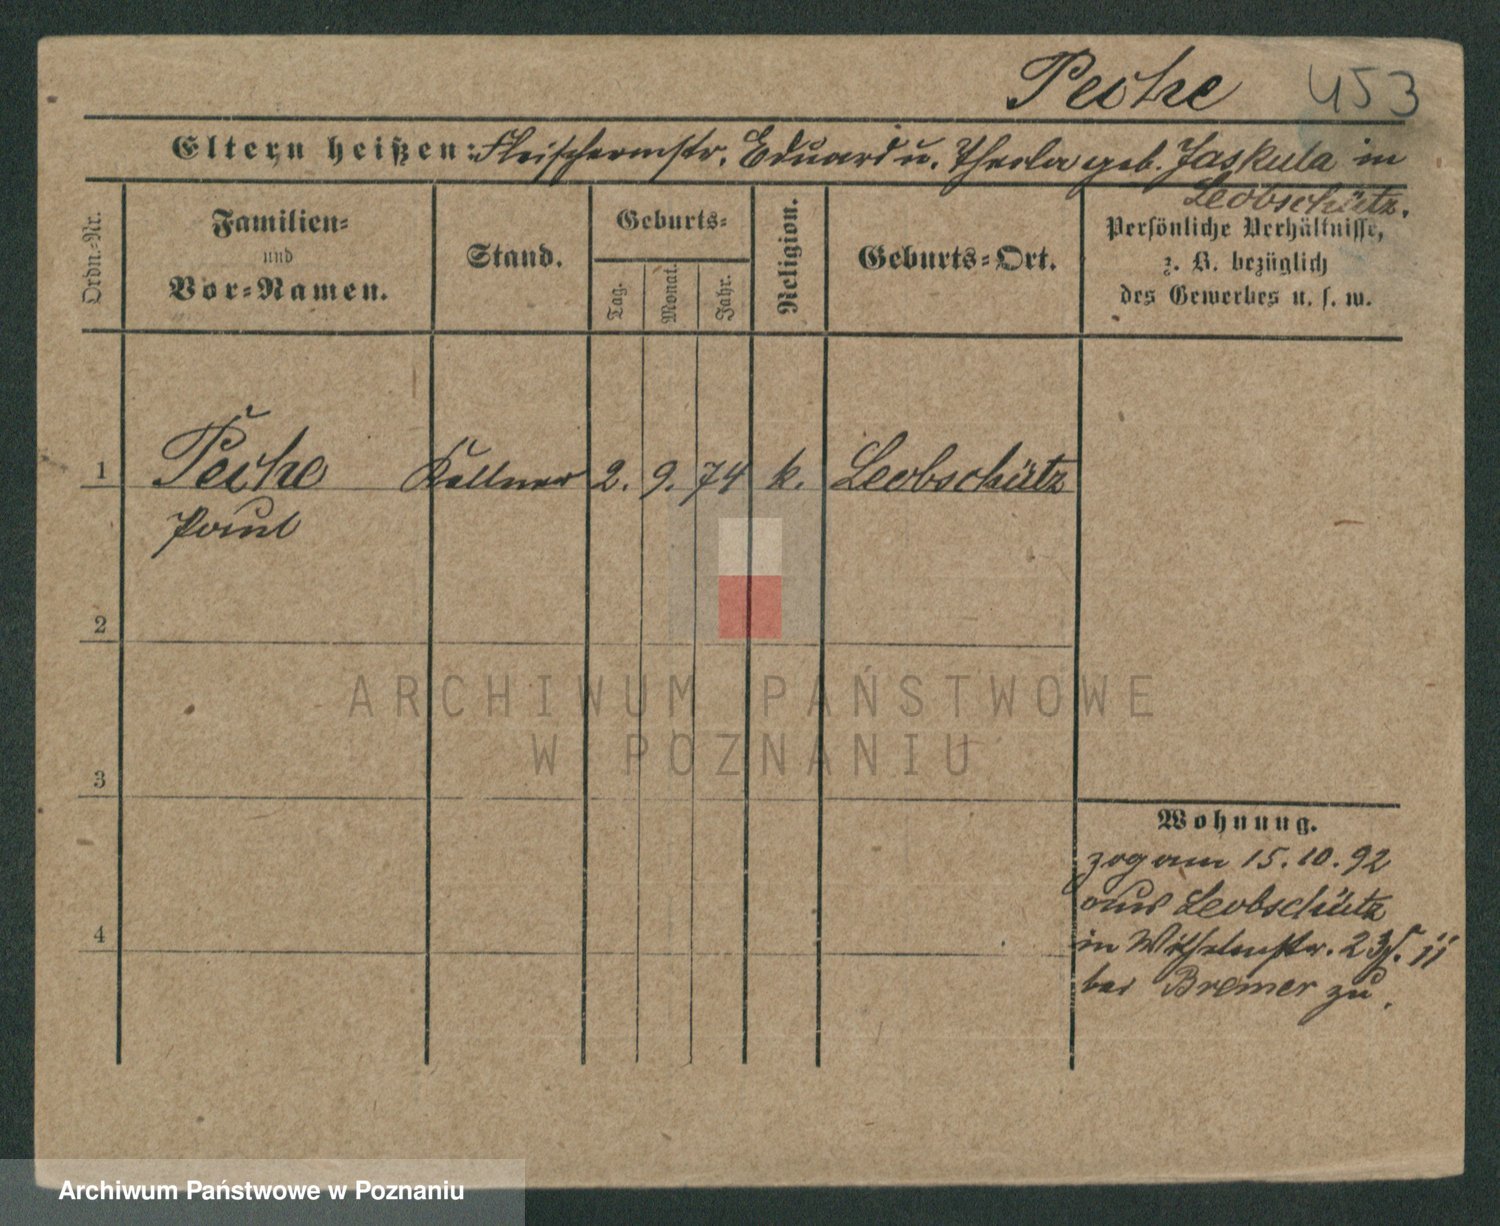 Peche 453
Eltern heißen: Fleischermstr. Eduard u. Thecla geb. Jaskula in
Leobschütz.
Ordn.-Nr.
Familien-
und
Vor-Namen.
Stand.
Geburts-
Tag.
Monat.
Jahr.
Religion.
Geburts-Ort.
Persönliche Verhältnisse,
z. B. bezüglich
des Gewerbes u. s. w.
1 Peche Kellner 2. 9. 74 k. Leobschütz
Paul
2
ARCHIWUM PAŃSTWOWE
W POZNANIU
3
Wohnung.
zog am 15.10.92
aus Leobschütz
4
in Wilhelmstr. 23 II
bei Bremer zu.
Archiwum Państwowe w Poznaniu